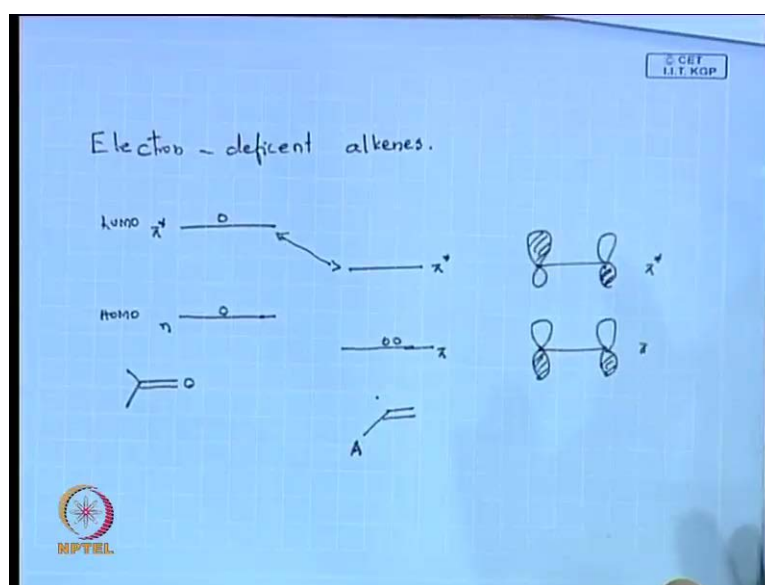 © CET
I.I.T. KGP
Electron - deficent alkenes.
LUMO π* o
π*
π*
HOMO n o
oo π
π
O
A
NPTEL